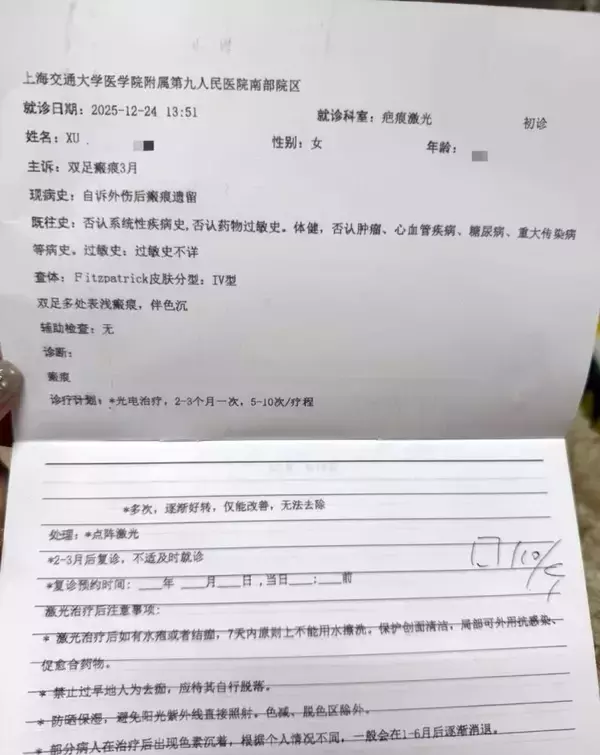 上海交通大学医学院附属第九人民医院南部院区
就诊日期：2025-12-24 13:51 就诊科室：疤痕激光 初诊
姓名：XU 性别：女 年龄：
主诉：双足瘢痕3月
现病史：自诉外伤后瘢痕遗留
既往史：否认系统性疾病史,否认药物过敏史。体健，否认肿瘤、心血管疾病、糖尿病、重大传染病
等病史。过敏史：过敏史不详
查体：Fitzpatrick皮肤分型：IV型
双足多处表浅瘢痕，伴色沉
辅助检查：无
诊断：
瘢痕
诊疗计划：*光电治疗，2-3个月一次，5-10次/疗程
*多次，逐渐好转，仅能改善，无法去除
处理：*点阵激光
*2-3月后复诊，不适及时就诊
*复诊预约时间：____年 ____月____日 ,当日____:____前
激光治疗后注意事项：
* 激光治疗后如有水疱或者结痂，7天内原则上不能用水擦洗。保护创面清洁，局部可外用抗感染、
促愈合药物。
* 禁止过早地人为去痂，应待其自行脱落。
* 防晒保湿，避免阳光紫外线直接照射。色减、脱色区除外。
* 部分病人在治疗后出现色素沉着，根据个人情况不同，一般会在1-6月后逐渐消退。